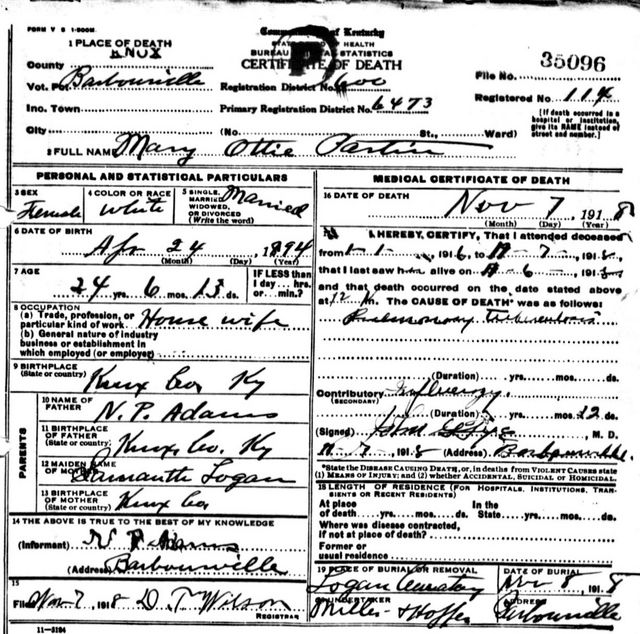 FORM V S 1-500M
Commonwealth of Kentucky
STATE BOARD OF HEALTH
BUREAU OF VITAL STATISTICS
CERTIFICATE OF DEATH
1 PLACE OF DEATH
County KNOX
File No. 35096
Vot. Pct. Barbourville
Registration District No. 600
Registered No. 114
Inc. Town
Primary Registration District No. 6473
[If death occurred in a hospital or institution, give its NAME instead of street and number.]
City (No. St., Ward)
2 FULL NAME Mary Ottie Partin
PERSONAL AND STATISTICAL PARTICULARS
3 SEX Female
4 COLOR OR RACE White
5 SINGLE, MARRIED, WIDOWED, OR DIVORCED (Write the word) Married
6 DATE OF BIRTH
Apr 24 1894
(Month) (Day) (Year)
7 AGE
24 yrs. 6 mos. 13 ds.
IF LESS than 1 day... hrs. or... min.?
8 OCCUPATION
(a) Trade, profession, or particular kind of work House wife
(b) General nature of industry
business or establishment in
which employed (or employer)
9 BIRTHPLACE
(State or country) Knox Co Ky
PARENTS
10 NAME OF FATHER N. P. Adams
11 BIRTHPLACE OF FATHER (State or country) Knox Co. Ky
12 MAIDEN NAME OF MOTHER Samantha Logan
13 BIRTHPLACE OF MOTHER (State or country) Knox Co
14 THE ABOVE IS TRUE TO THE BEST OF MY KNOWLEDGE
(Informant) N P Adams
(Address) Barbourville
15
Filed Nov 7, 1918 D. T. Wilson
REGISTRAR
11-3184
MEDICAL CERTIFICATE OF DEATH
16 DATE OF DEATH
Nov 7, 1918
(Month) (Day) (Year)
I HEREBY CERTIFY, That I attended deceased
from 1-1-, 1916, to 11-7-, 1918,
that I last saw her alive on 11-6-, 1918,
and that death occurred on the date stated above
at 12 M. The CAUSE OF DEATH* was as follows:
Pulmonary Tuberculosis
(Duration) yrs. mos. ds.
Contributory Influenza
(SECONDARY)
(Duration) yrs. mos. 12 ds.
(Signed) M. D.
11-7, 1918 (Address) Barbourville.
*State the DISEASE CAUSING DEATH, or, in deaths from VIOLENT CAUSES state
(1) MEANS OF INJURY; and (2) whether ACCIDENTAL, SUICIDAL or HOMICIDAL.
18 LENGTH OF RESIDENCE (FOR HOSPITALS, INSTITUTIONS, TRANSIENTS OR RECENT RESIDENTS)
At place of death yrs. mos. ds. In the State yrs. mos. ds.
Where was disease contracted,
if not at place of death?
Former or
usual residence
19 PLACE OF BURIAL OR REMOVAL
Logan
DATE OF BURIAL
Nov 8 1918
UNDERTAKER
Miller
ADDRESS
Barbourville